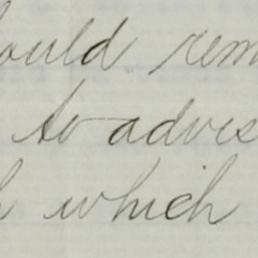 ould rem
to advis
h which